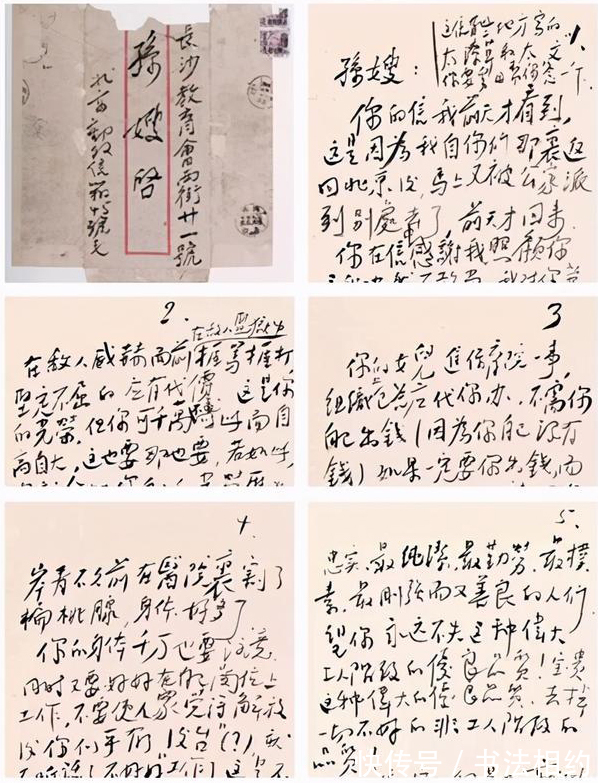 長沙教育會西街廿一號
孫嫂啓
1、
孫嫂：
你的信我前天才看到，
這是因為我自你们那裏返
回北京后，馬上又被公家派
到别處去了，前天才回来
你在信感謝我照顧你
2.
在敌人監獄中
在敌人威脅面前挨罵挨打
堅定不屈的应有代價，這是你
的光榮，但你可千萬 而自
高自大，這也要那也要，若如此，
3
你的女兒進保育院一事，
組織已为应代你办，不需你
自己出錢（因為你自己没有
錢）如果一定要你出錢，而
4
岸青不久前在醫院裏割了
扁桃腺，身体好多了
你的身体千万也要注意
同时又要好好在自己崗位上
工作，不要使人家覺得解放
后你们手有"后台"（？）就
5.
忠实、最純潔、最勤勞、最樸
素、最剛强而又善良的人们
望你永远不失这种偉大
工人階級的優良品質！寶貴
这种偉大的優良品質，去掉
一切不好的非工人階級的
品質
快传号／书法相约